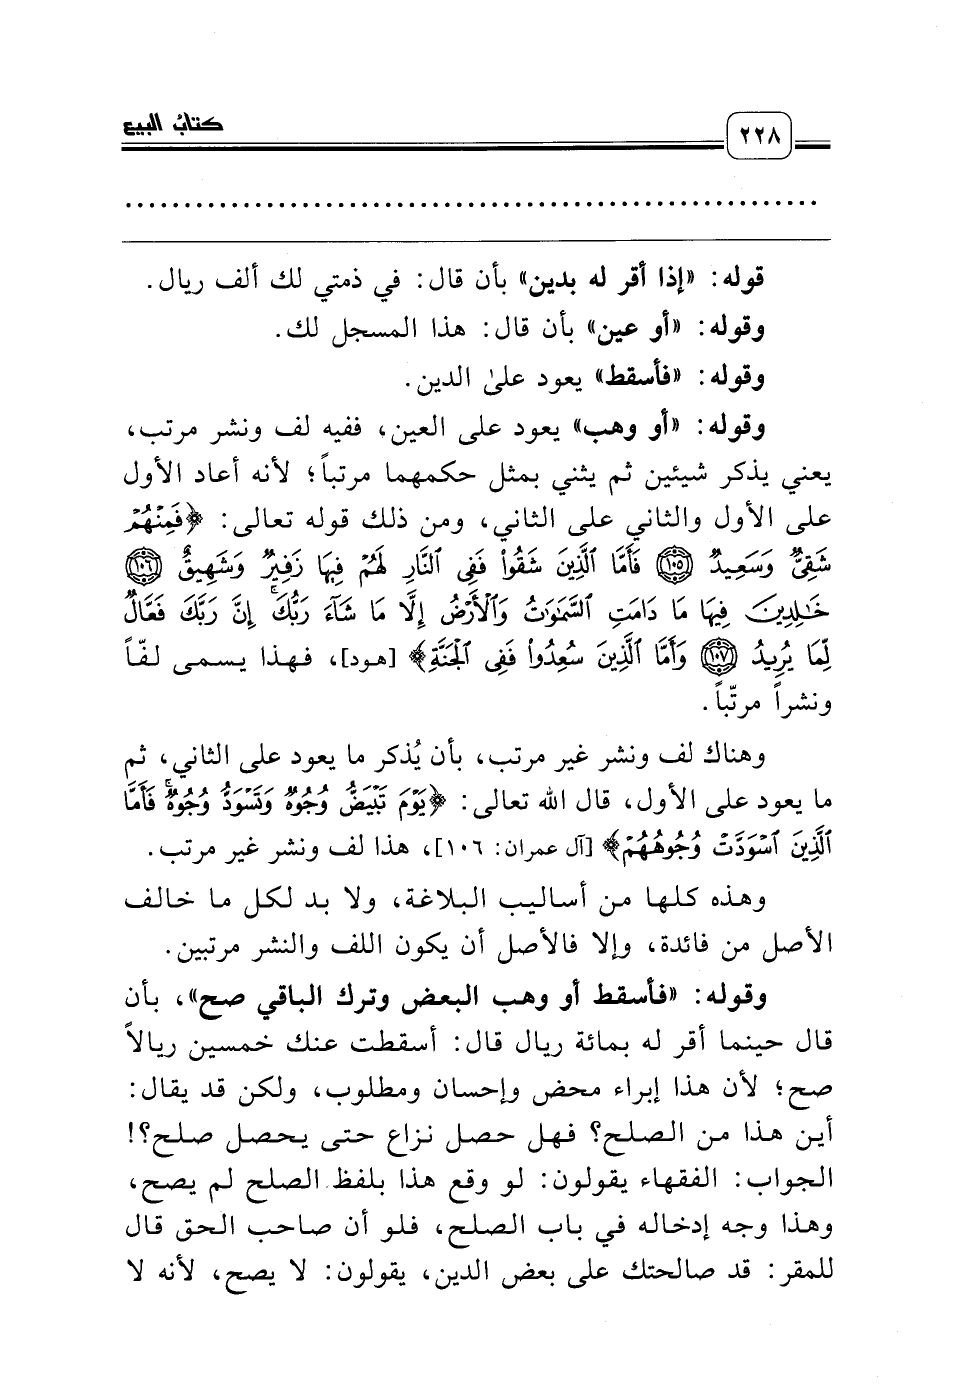 كتاب البيع
٢٢٨
قوله: «إذا أقر له بدين» بأن قال: في ذمتي لك ألف ريال.
وقوله: «أو عين» بأن قال: هذا المسجل لك.
وقوله: «فأسقط» يعود على الدين.
وقوله: «أو وهب» يعود على العين، ففيه لف ونشر مرتب،
يعني يذكر شيئين ثم يثني بمثل حكمهما مرتباً؛ لأنه أعاد الأول
على الأول والثاني على الثاني، ومن ذلك قوله تعالى: ﴿فَمِنْهُمْ
شَقِيٌّ وَسَعِيدٌ ١٠٥ فَأَمَّا ٱلَّذِينَ شَقُوا۟ فَفِى ٱلنَّارِ لَهُمْ فِيهَا زَفِيرٌ وَشَهِيقٌ ١٠٦
خَٰلِدِينَ فِيهَا مَا دَامَتِ ٱلسَّمَٰوَٰتُ وَٱلْأَرْضُ إِلَّا مَا شَآءَ رَبُّكَ ۚ إِنَّ رَبَّكَ فَعَّالٌ
لِّمَا يُرِيدُ ١٠٧ وَأَمَّا ٱلَّذِينَ سُعِدُوا۟ فَفِى ٱلْجَنَّةِ﴾ [هود]، فهذا يسمى لفّاً
ونشراً مرتّباً.
وهناك لف ونشر غير مرتب، بأن يُذكر ما يعود على الثاني، ثم
ما يعود على الأول، قال الله تعالى: ﴿يَوْمَ تَبْيَضُّ وُجُوهٌ وَتَسْوَدُّ وُجُوهٌ ۚ فَأَمَّا
ٱلَّذِينَ ٱسْوَدَّتْ وُجُوهُهُمْ﴾ [آل عمران: ١٠٦]، هذا لف ونشر غير مرتب.
وهذه كلها من أساليب البلاغة، ولا بد لكل ما خالف
الأصل من فائدة، وإلا فالأصل أن يكون اللف والنشر مرتبين.
وقوله: «فأسقط أو وهب البعض وترك الباقي صح»، بأن
قال حينما أقر له بمائة ريال قال: أسقطت عنك خمسين ريالاً
صح؛ لأن هذا إبراء محض وإحسان ومطلوب، ولكن قد يقال:
أين هذا من الصلح؟ فهل حصل نزاع حتى يحصل صلح؟!
الجواب: الفقهاء يقولون: لو وقع هذا بلفظ الصلح لم يصح،
وهذا وجه إدخاله في باب الصلح، فلو أن صاحب الحق قال
للمقر: قد صالحتك على بعض الدين، يقولون: لا يصح، لأنه لا